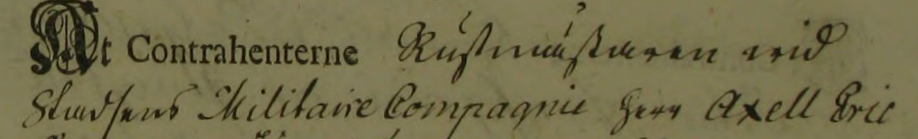 At Contrahenterne Rustmästaren wid
Stadsens Militaire Compagnie Herr Axell Eric